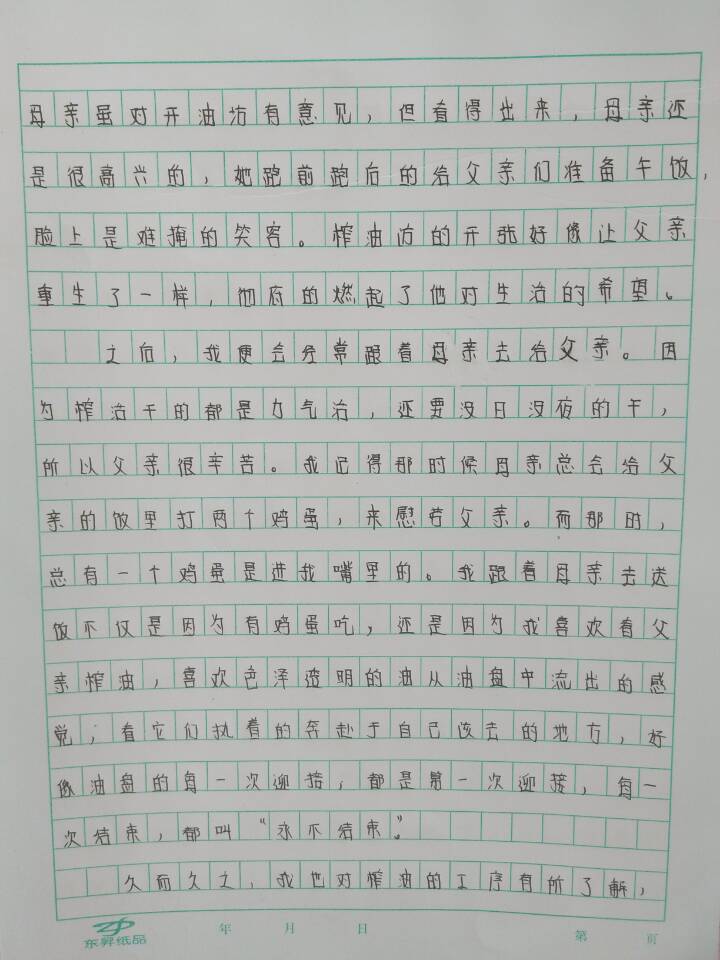 母亲虽对开油坊有意见，但看得出来，母亲还
是很高兴的，她跑前跑后的给父亲们准备午饭，
脸上是难掩的笑容。榨油访的开张好像让父亲
重生了一样，彻府的燃起了他对生活的希望。
之后，我便会经常跟着母亲去给父亲。因
为榨油干的都是力气活，还要没日没夜的干，
所以父亲很辛苦。我记得那时候母亲总会给父
亲的饭里打两个鸡蛋，来慰劳父亲。而那时，
总有一个鸡蛋是进我嘴里的。我跟着母亲去送
饭不仅是因为有鸡蛋吃，还是因为我喜欢看父
亲榨油，喜欢色泽透明的油从油盘中流出的感
觉；看它们执着的奔赴于自己该去的地方，好
像油盘的每一次迎接，都是第一次迎接，每一
次结束，都叫“永不结束”。
久而久之，我也对榨油的工序有所了解，
东昇纸品 年 月 日 第 页